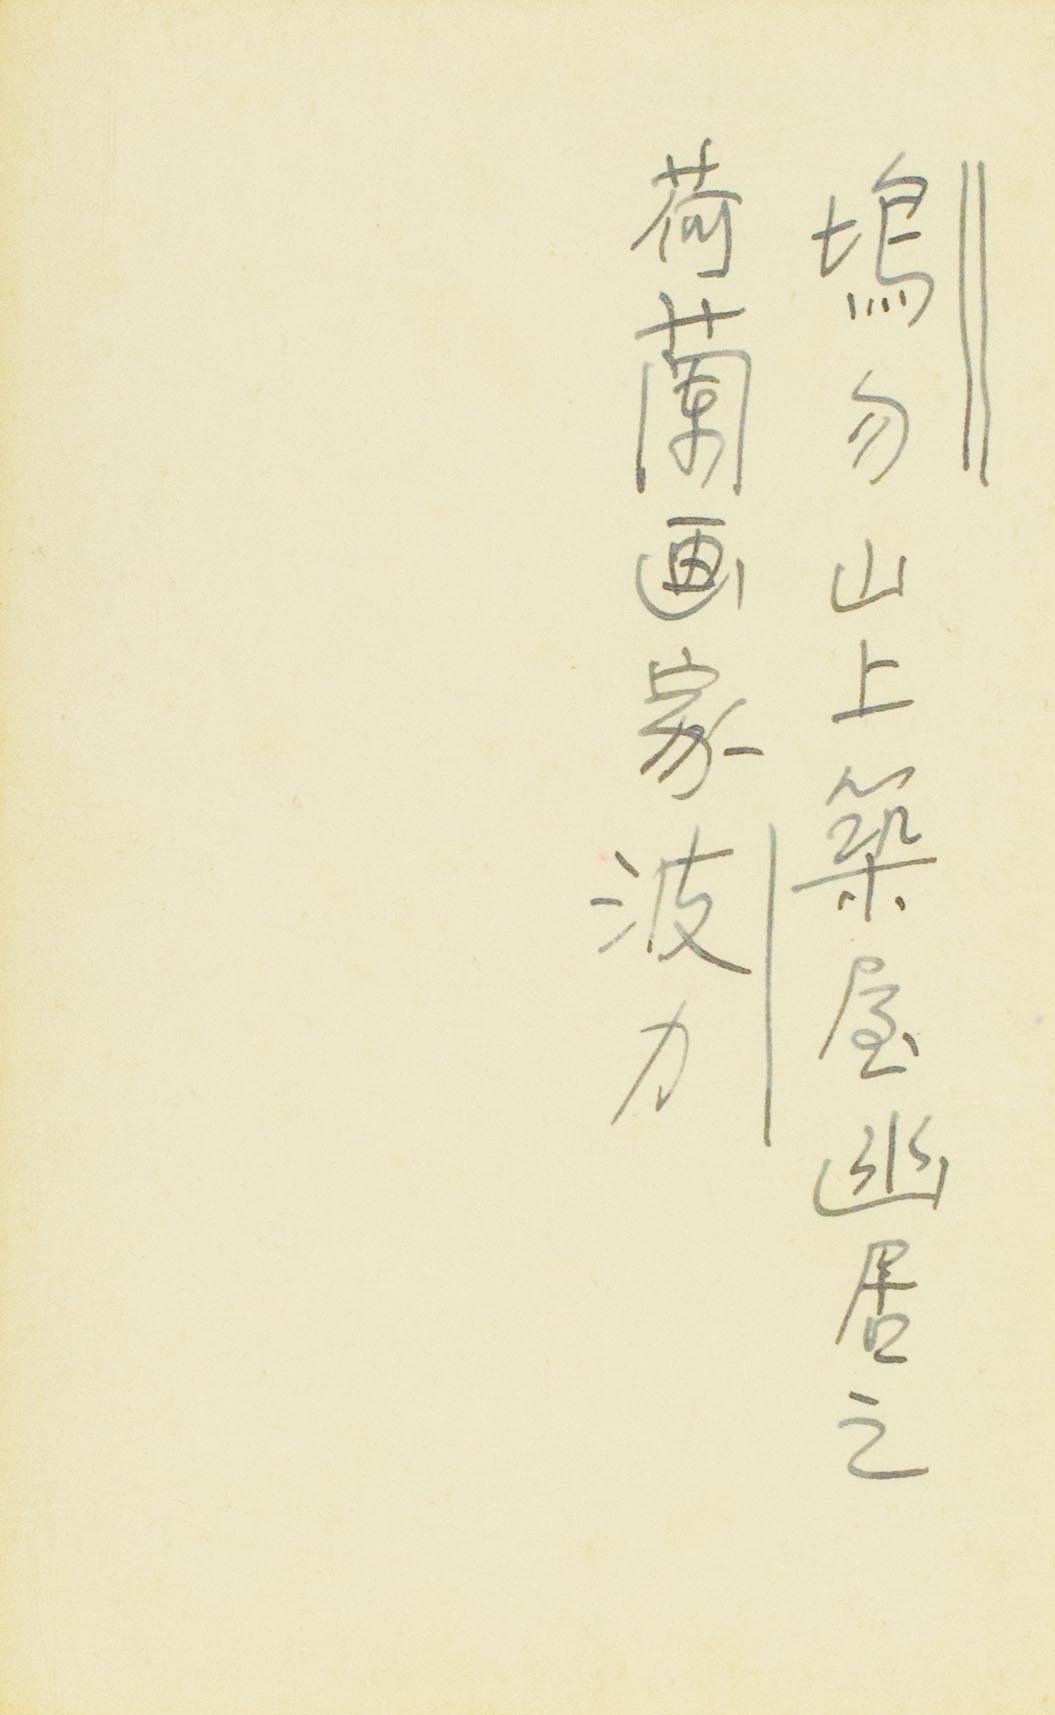 塢勿山上築屋幽居之
荷蘭画家波力